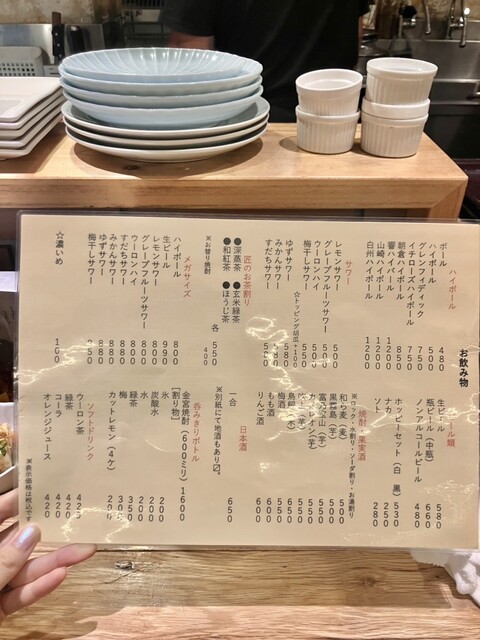 お飲み物
ハイボール
ボール 480
ハイボール 500
グレンフィディック 850
イチローズハイボール 750
朝倉ハイボール
響ハイボール 1200
山崎ハイボール 1200
白州ハイボール 1200
サワー
レモンサワー 500
グレープフルーツサワー 550
ウーロンハイ 500
梅干しサワー 550
☆トッピング胡瓜+100
ゆずサワー
みかんサワー
すだちサワー 580
匠のお茶割り
●深蒸茶 ●玄米緑茶
●和紅茶 ●ほうじ茶
各 550
※お替り焼酎 400
メガサイズ
ハイボール 800
生ビール 900
レモンサワー
グレープフルーツサワー
ウーロンハイ
すだちサワー 880
みかんサワー 880
ゆずサワー 880
梅干しサワー
☆濃いめ 100
ール類
生ビール 580
瓶ビール(中瓶) 660
ノンアルコールビール 480
ホッピーセット(白 黒) 530
ナカ 250
ソト 280
焼酎・果実酒
※ロック・水割り・ソーダ割り・お湯割り
和ら麦(麦) 500
黒霧島(芋) 500
富乃宝山(芋) 550
(芋) 550
(芋) 550
梅酒 500
もも酒 600
りんご酒 600
日本酒
一合 650
※別紙にて地酒もあり〼。
呑みきりボトル
金宮焼酎(600ミリ) 1600
[割り物]
氷 200
炭酸水 200
水 200
緑茶
梅
カットレモン(4ケ) 200
ソフトドリンク
ウーロン茶 420
緑茶 420
コーラ 420
オレンジジュース 420
※表示価格は税込です